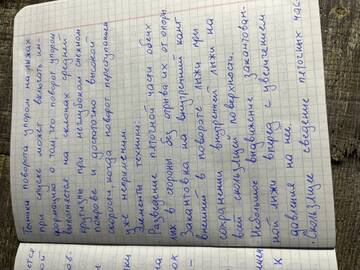 Техника поворота упором на лыжах
при спуске может включать ин-
формацию о том, что поворот упором
выполняется на склонах средней
крутизны при неглубоком снежном
покрове и достаточно высокой
скорости, когда поворот переступанием
уже неприемлем.
Элементы техники:
Разведение пяточной части обеих
лыж в стороны без отрыва их от опоры
Закантовка на внутренний кант
внешней в повороте лыжи при
сохранении внутренней лыжи на
всей скользящей поверхности.
Небольшое выдвижение закантован-
ной лыжи вперед с увеличением
давления на нее.
Скользящее сведение пяточных час-